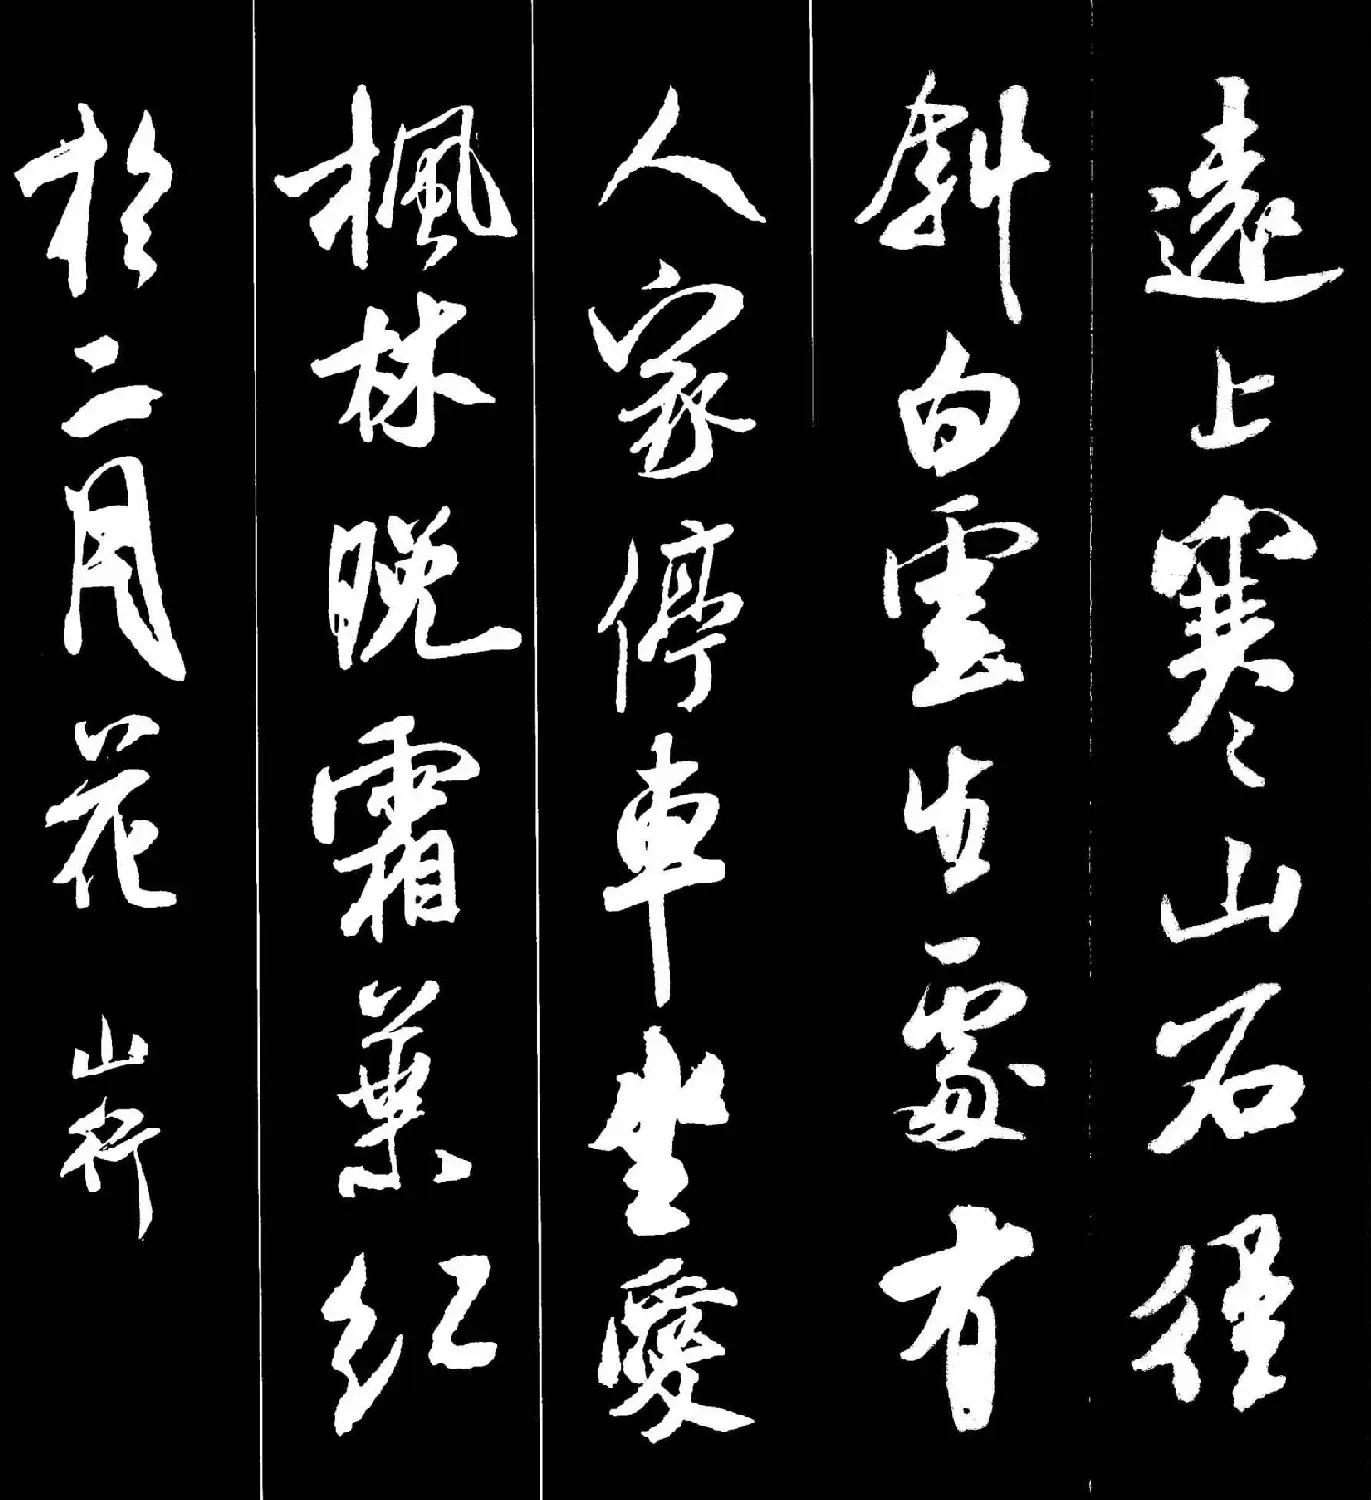 遠上寒山石徑
斜白雲生處有
人家停車坐愛
楓林晚霜葉紅
於二月花 山行